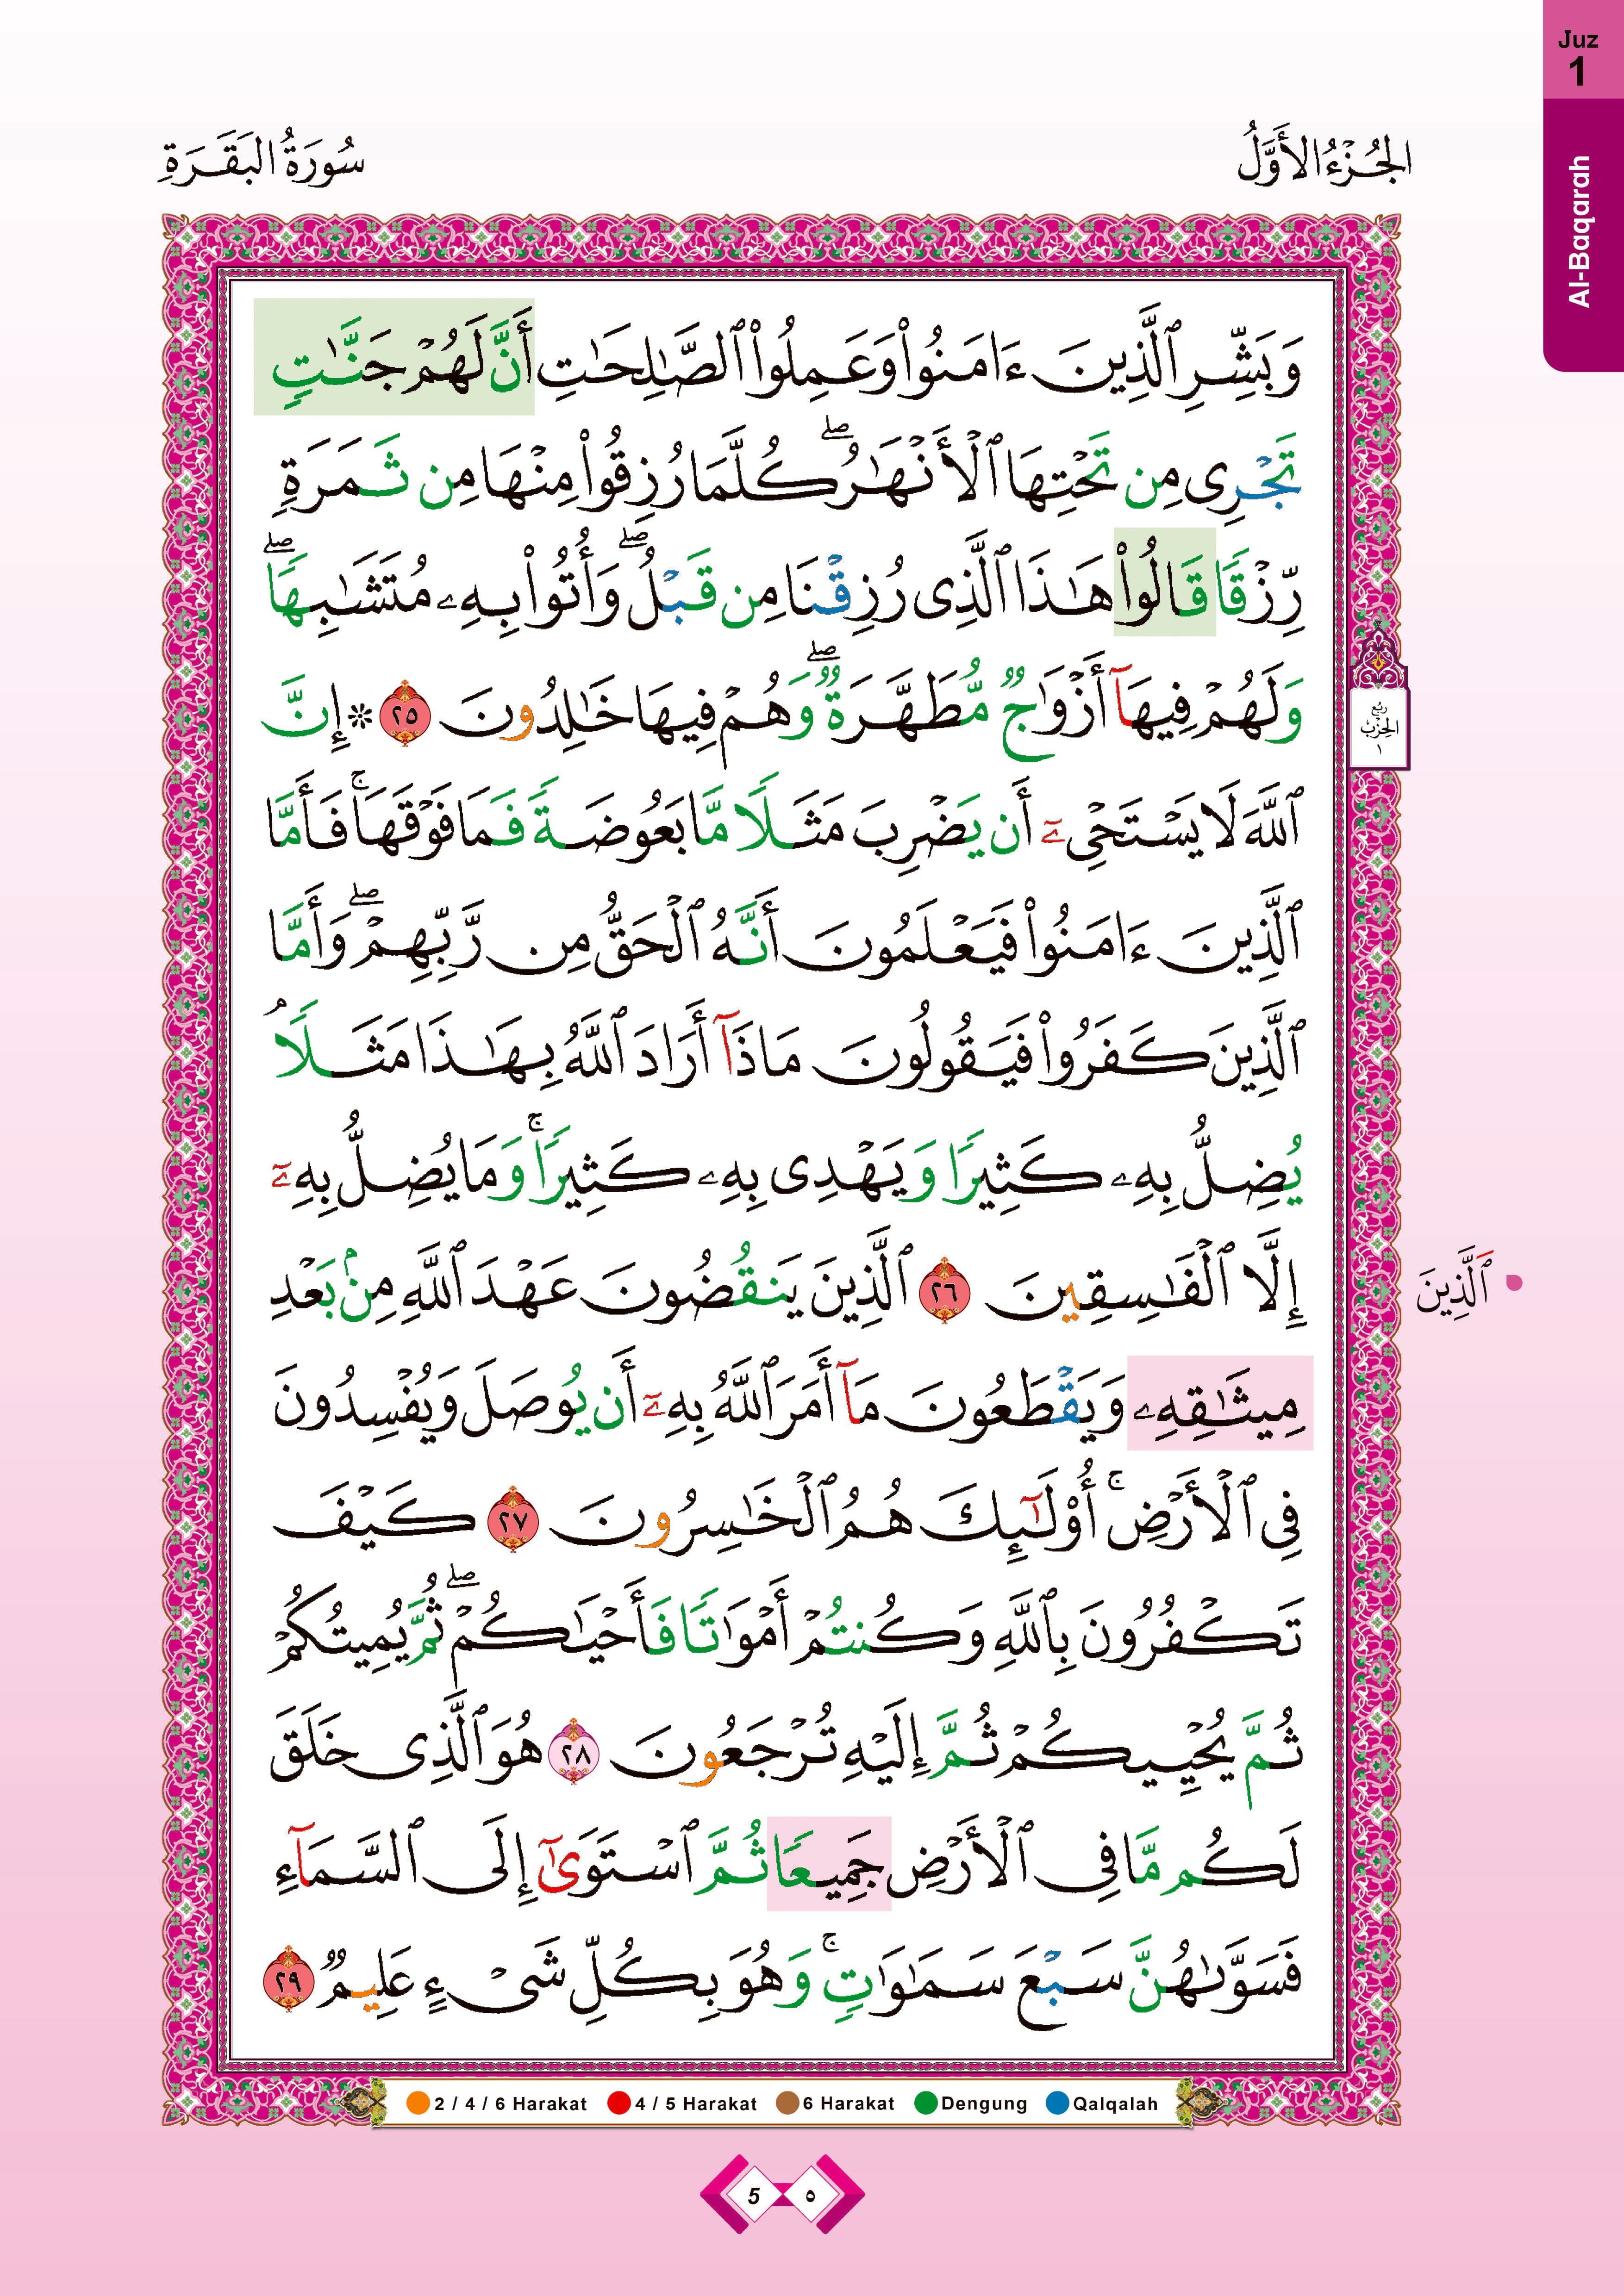 Juz
1
Al-Baqarah
الجُزْءُ الأَوَّلُ
سُورَةُ البَقَرَةِ
وَبَشِّرِ ٱلَّذِينَ ءَامَنُوا۟ وَعَمِلُوا۟ ٱلصَّٰلِحَٰتِ أَنَّ لَهُمْ جَنَّٰتٍ
تَجْرِى مِن تَحْتِهَا ٱلْأَنْهَٰرُ ۖ كُلَّمَا رُزِقُوا۟ مِنْهَا مِن ثَمَرَةٍ
رِّزْقًا قَالُوا۟ هَٰذَا ٱلَّذِى رُزِقْنَا مِن قَبْلُ ۖ وَأُتُوا۟ بِهِۦ مُتَشَٰبِهًا ۖ
وَلَهُمْ فِيهَآ أَزْوَٰجٌ مُّطَهَّرَةٌ ۖ وَهُمْ فِيهَا خَٰلِدُونَ ٢٥ ۞ إِنَّ
ٱللَّهَ لَا يَسْتَحْىِۦٓ أَن يَضْرِبَ مَثَلًا مَّا بَعُوضَةً فَمَا فَوْقَهَا ۚ فَأَمَّا
ٱلَّذِينَ ءَامَنُوا۟ فَيَعْلَمُونَ أَنَّهُ ٱلْحَقُّ مِن رَّبِّهِمْ ۖ وَأَمَّا
ٱلَّذِينَ كَفَرُوا۟ فَيَقُولُونَ مَاذَآ أَرَادَ ٱللَّهُ بِهَٰذَا مَثَلًا ۘ
يُضِلُّ بِهِۦ كَثِيرًا وَيَهْدِى بِهِۦ كَثِيرًا ۚ وَمَا يُضِلُّ بِهِۦٓ
إِلَّا ٱلْفَٰسِقِينَ ٢٦ ٱلَّذِينَ يَنقُضُونَ عَهْدَ ٱللَّهِ مِنۢ بَعْدِ
مِيثَٰقِهِۦ وَيَقْطَعُونَ مَآ أَمَرَ ٱللَّهُ بِهِۦٓ أَن يُوصَلَ وَيُفْسِدُونَ
فِى ٱلْأَرْضِ ۚ أُو۟لَٰٓئِكَ هُمُ ٱلْخَٰسِرُونَ ٢٧ كَيْفَ
تَكْفُرُونَ بِٱللَّهِ وَكُنتُمْ أَمْوَٰتًا فَأَحْيَٰكُمْ ۖ ثُمَّ يُمِيتُكُمْ
ثُمَّ يُحْيِيكُمْ ثُمَّ إِلَيْهِ تُرْجَعُونَ ٢٨ هُوَ ٱلَّذِى خَلَقَ
لَكُم مَّا فِى ٱلْأَرْضِ جَمِيعًا ثُمَّ ٱسْتَوَىٰٓ إِلَى ٱلسَّمَآءِ
فَسَوَّىٰهُنَّ سَبْعَ سَمَٰوَٰتٍ ۚ وَهُوَ بِكُلِّ شَىْءٍ عَلِيمٌ ٢٩
رُبْع
الحِزْب
١
ٱلَّذِينَ
2 / 4 / 6 Harakat 4 / 5 Harakat 6 Harakat Dengung Qalqalah
5 ٥